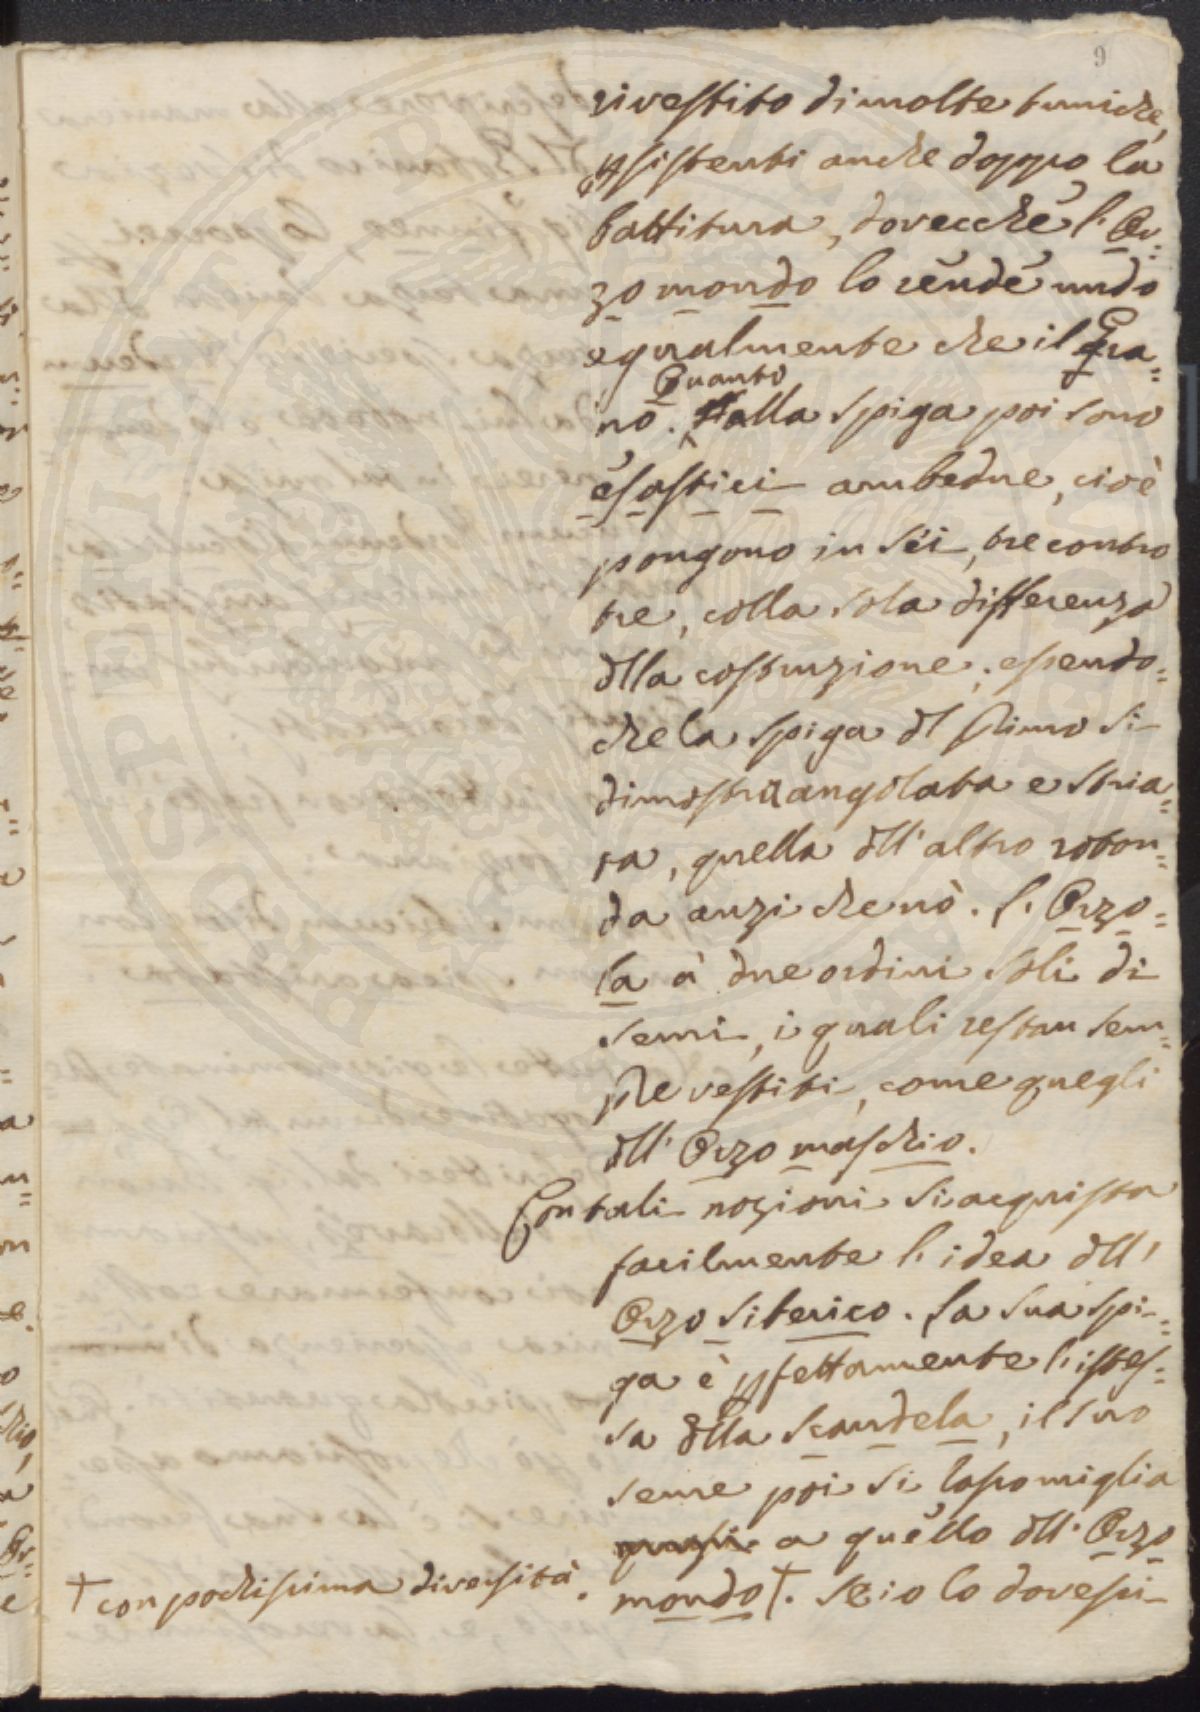 9
rivestito di molte tuniche,
psistenti anche doppo la
battitura, dovecchè l'Or=
zo mondo lo rende nudo
egualmente che il Gra=
Quanto
no. alla spiga poi sono
esastici ambedue, cioè
pongono in sei, tre contro
tre, colla sola differenza
dlla costruzione; essendo=
che la spiga dl primo si
dimostra angolata e stria=
ta, quella dll'altro roton=
da anzi che nò. L'Orzo=
la à due ordini soli di
semi, i quali restan sem=
pre vestiti, come quegli
dll'Orzo maschio.
Con tali nozioni si acquista
facilmente l'idea dll'
Orzo siterico. La sua spi=
ga è pfettamente l'istes=
sa dlla Scandela, il suo
seme poi si rassomiglia
quasi a quello dll'Orzo
mondo†. Se io lo dovessi
† con pochissima diversità.